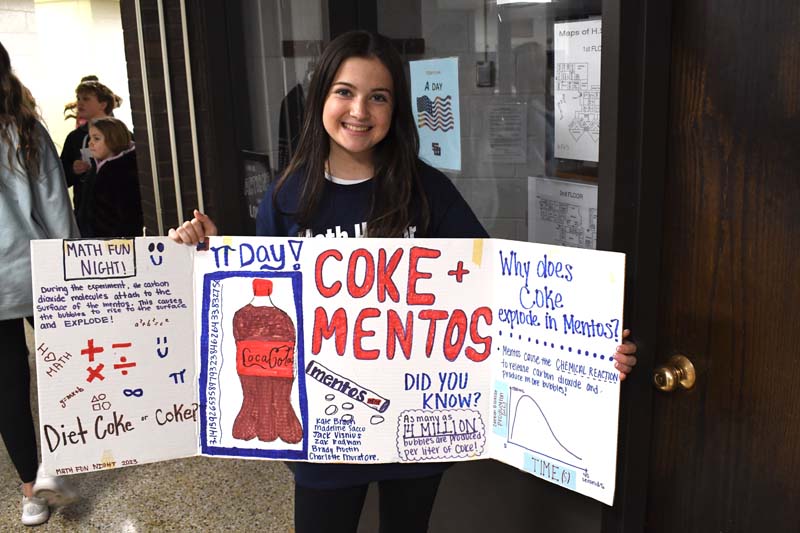 MATH FUN
NIGHT!
During the experiment, the carbon
dioxide molecules attach to the
surface of the mentos. This causes
the bubbles to rise to the surface
and EXPLODE!
a²+b²=c²
I ♡
MATH
y=mx+b
π
Diet Coke or Coke?
MATH FUN NIGHT 2023
π Day!
CocaCola
COKE +
MENTOS
mentos
DID YOU
KNOW?
As many as
14 MILLION
bubbles are produced
per liter of Coke!
Kate Brown
Madeline Sacco
Jack Visnius
Zak Radman
Brady Proctin
Charlotte Muratore
Why does
Coke
explode in Mentos?
Mentos cause the CHEMICAL REACTION
to release carbon dioxide and
produce more bubbles!
production
TIME (s)
45
seconds
Math
A DAY
Maps of H.S
1st FLOOR
FLOOR